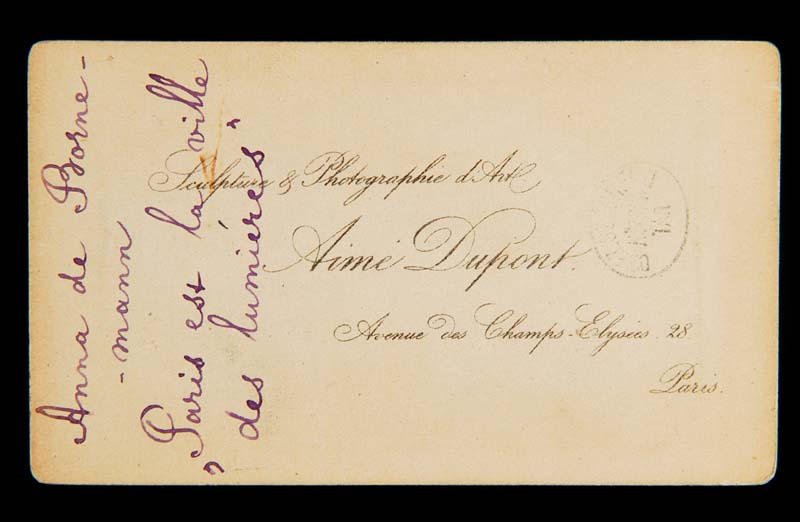 Anna de Borne-
-mann
„Paris est la ville
des lumières"
Sculpture & Photographie d'Art
Aimé Dupont.
Avenue des Champs-Elysées. 28.
Paris.